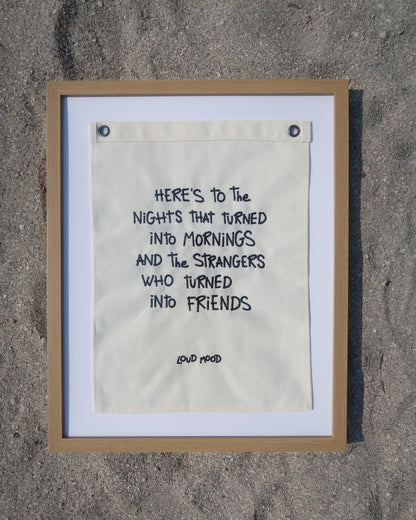 HERE'S TO THE
NIGHTS THAT TURNED
iNTO MORNINGS
AND THE STRANGERS
WHO TURNED
iNTO FRiENDS
LOUD MOOD